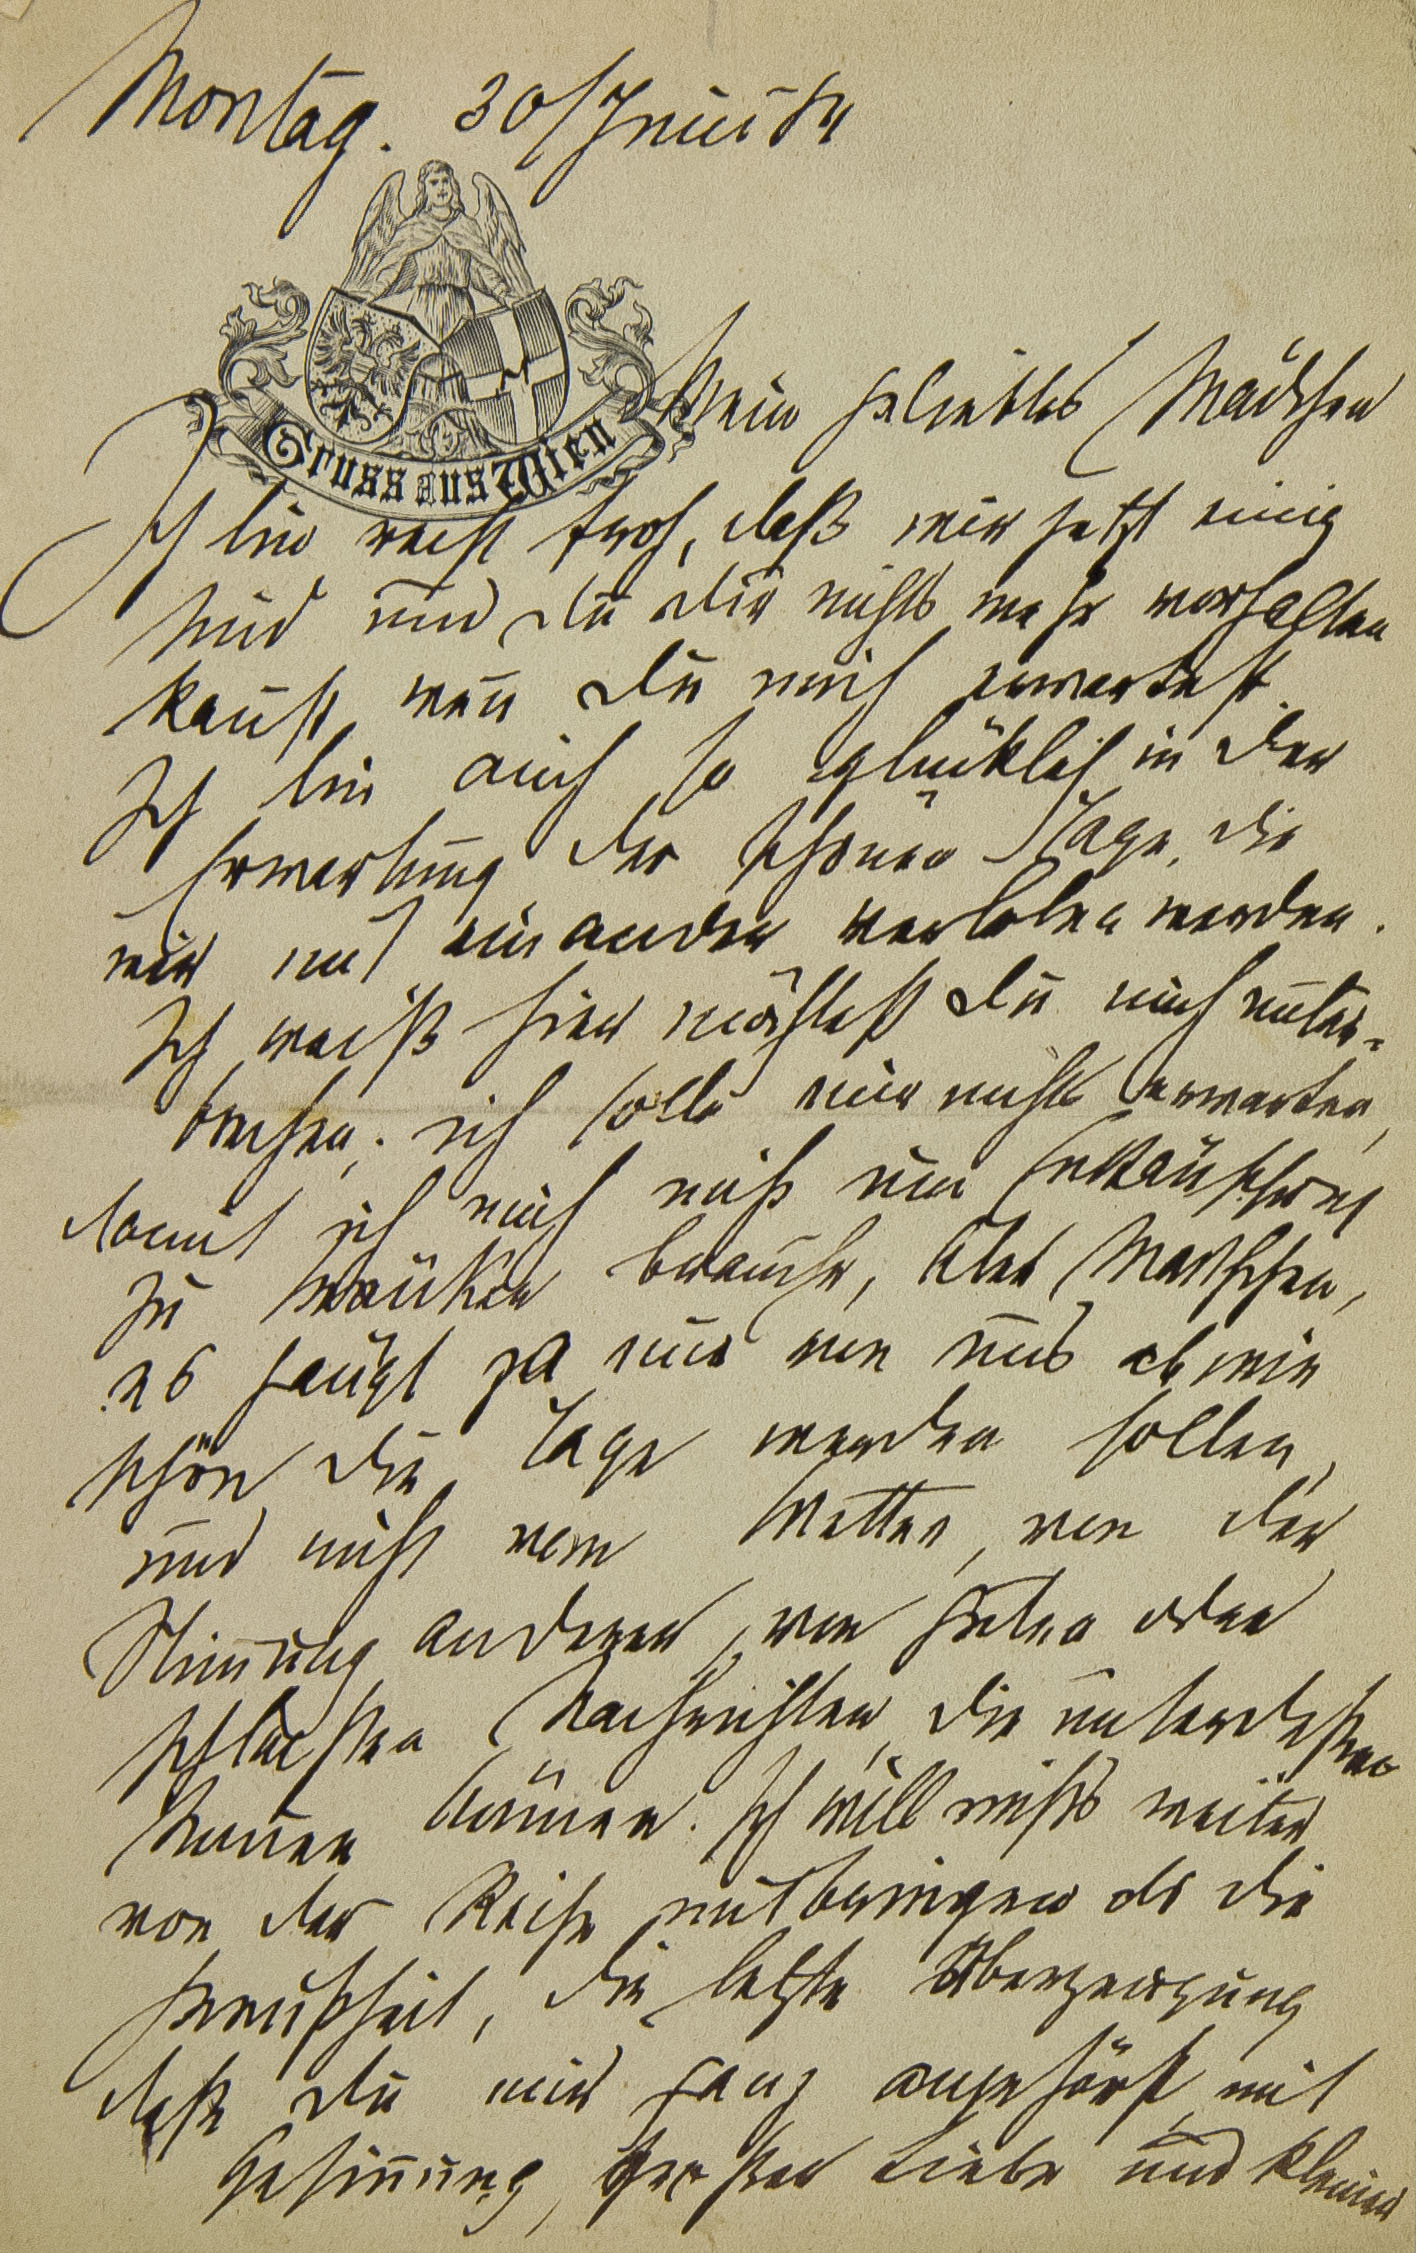 Montag. 30/Juni 84
Gruss aus Wien
Mein geliebtes Mädchen
Ich bin recht froh, daß wir jetzt einig
sind und du dir nichts mehr vorhalten
kanst, wenn Du mich erwartest.
Ich bin auch so glücklich in der
Erwartung der schönen Tage, die
wir mit einander verleben werden.
Ich weiß hier möchtest Du mich unter-
brechen; ich solle mir nichts erwarten,
damit ich mich nicht um Enttäuschung
zu kränken brauche, Aber Marthchen,
es hängt ja nur von uns ab wie
schön die Tage werden sollen,
und nicht vom Wetter, von der
Stimmung anderer, von guten oder
schlechten Nachrichten, die unterdeßen
kommen können. Ich will nichts weiter
von der Reise mitbringen als die
Gewißheit, die letzte Überzeugung
daß Du mir ganz angehörst mit
Gesinnung, großer Liebe und kleiner